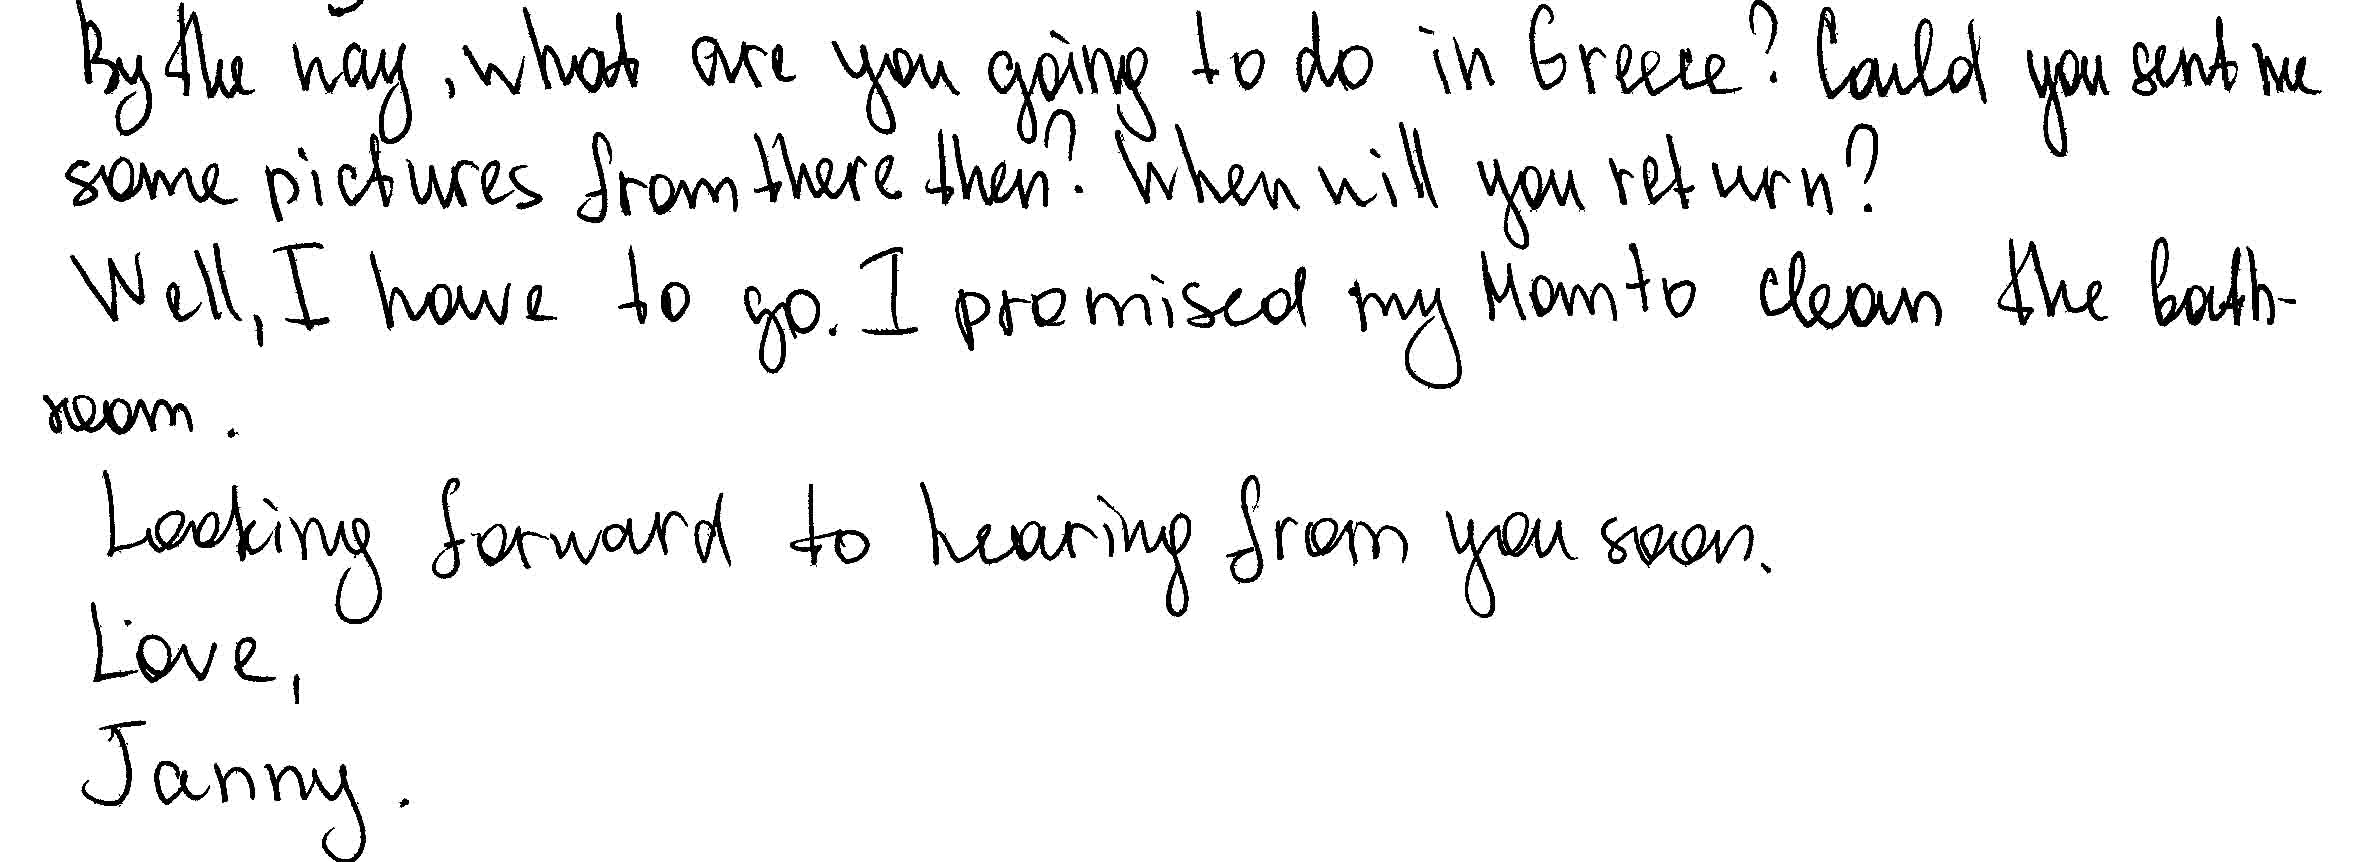 By the way, what are you going to do in Greece? Could you sent me
some pictures from there then? When will you return?
Well, I have to go. I promised my Mom to clean the bath-
room.
Looking forward to hearing from you soon.
Love,
Janny.